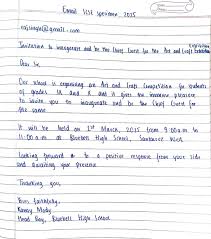 Email ISC specimen 2025
rajsingle@gmail.com
Invitation to inaugurate and be the Chief Guest for the Art and Craft Exhibition
Dear Sir,
Our school is organising an Art and Craft Competition for students
of grades and it gives me immense pleasure
to invite you to inaugurate and be the Chief Guest for
the same
It will be held on 1st March, 2025 from 9:00 a.m to
11:00 a.m at Bluebell High School,
Looking forward to a positive response from your side
and awaiting your presence
Thanking you
Yours faithfully,
Ronney Mody
Head Boy, Bluebell High School